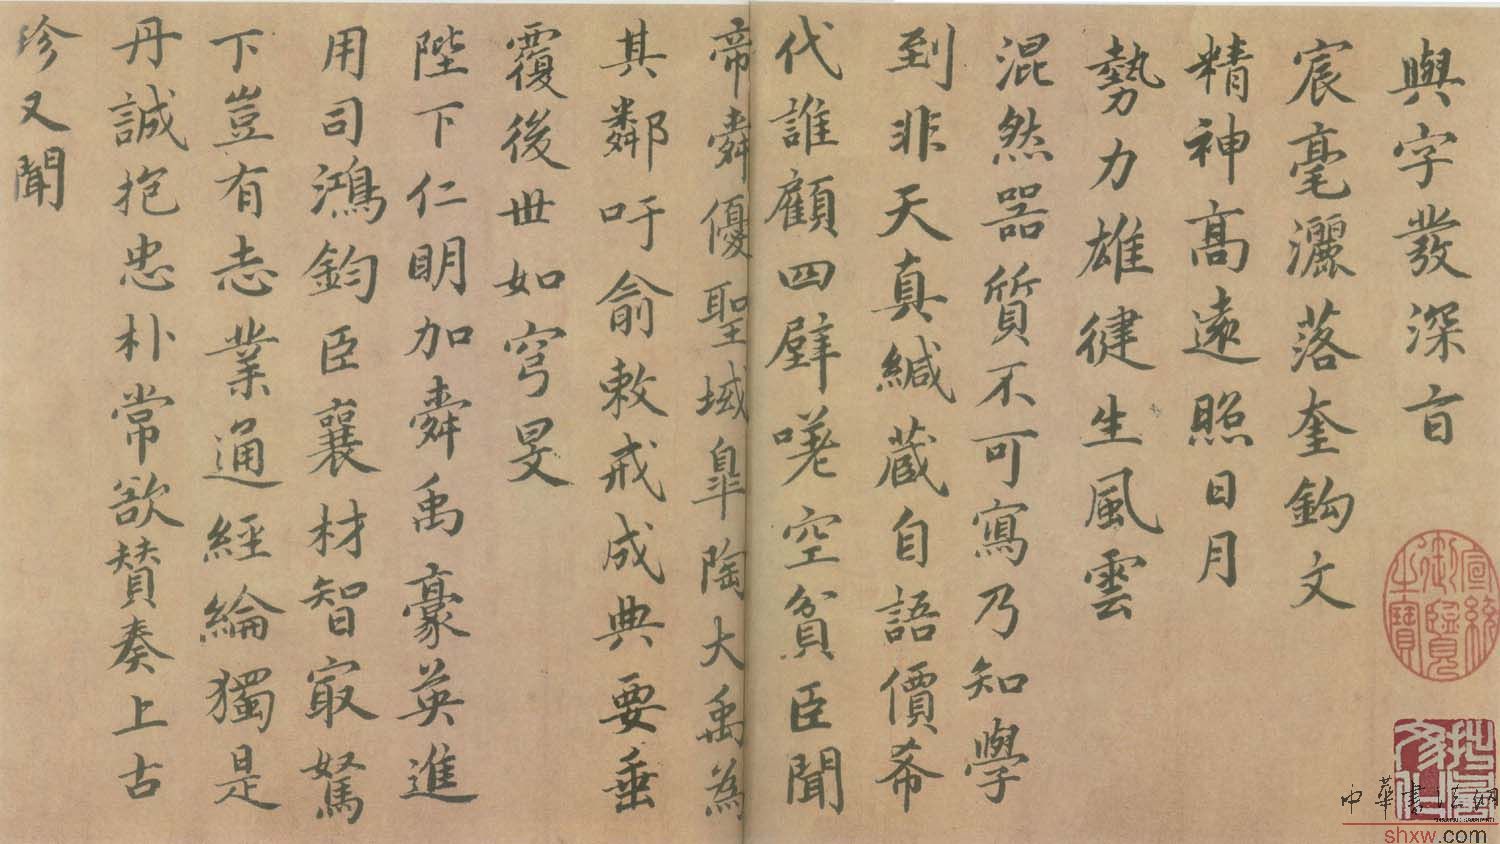 輿字發深旨
宸毫灑落奎鈎文
精神高遠照日月
勢力雄健生風雲
混然器質不可寫乃知學
到非天真緘藏自語價希
代誰顧四壁嗟空貧臣聞
帝舜優聖域皐陶大禹為
其鄰吁俞敕戒成典要垂
覆後世如穹旻
陛下仁明加舜禹豪英進
用司鴻鈞臣襄材智最駑
下豈有志業通經綸獨是
丹誠抱忠朴常欲贊奏上古
珍又聞
宣統御覽之寶
中華書法网
shxw.com